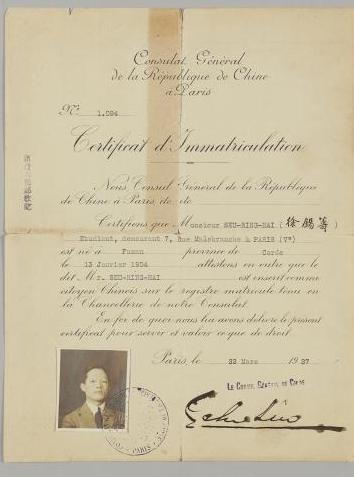 Consulat Général
de la République de Chine
à Paris
No. 1.094
Certificat d'Immatriculation
Nous Consul Général de la République
de Chine à Paris de etc
Certifions que Monsieur SEU-RING-HAI (徐
Etudiant, demeurant 7, Rue Malebranche à PARIS (Ve)
est né à Fusan province de Corée
le 13 Janvier 1904 attestons en outre que le
dit Mr. SEU-RING-HAI est inscrit comme
citoyen Chinois sur le registre matricule tenu en
la Chancellerie de notre Consulat.
En foi de quoi nous lui avons délivré le présent
certificat pour servir et valoir ce que de droit
Paris, le 22 Mars 1937
LE CONSUL GÉNÉRAL DE CHINE
PARIS